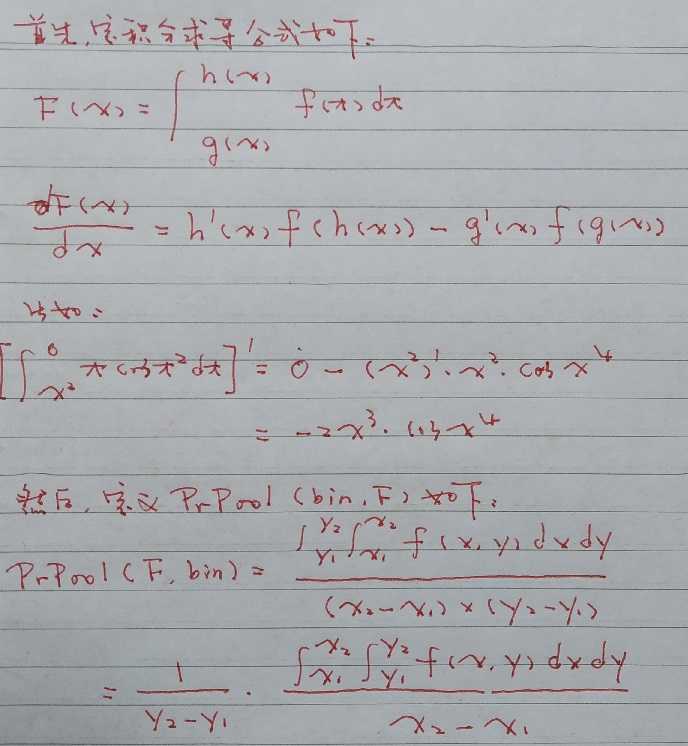 首先,定积分求导公式如下:
F(x) = ∫_{g(x)}^{h(x)} f(t)dt
dF(x)/dx = h'(x)f(h(x)) - g'(x)f(g(x))
比如:
[∫_{x²}^{0} t cos t² dt]' = 0 - (x²)'·x²·cos x⁴
= -2x³·cos x⁴
然后,定义PrPool(bin,F)如下:
PrPool(F,bin) = ∫_{y₁}^{y₂}∫_{x₁}^{x₂} f(x,y)dxdy / (x₂-x₁)×(y₂-y₁)
= 1/(y₂-y₁) · ∫_{x₁}^{x₂}∫_{y₁}^{y₂} f(x,y)dxdy / x₂-x₁